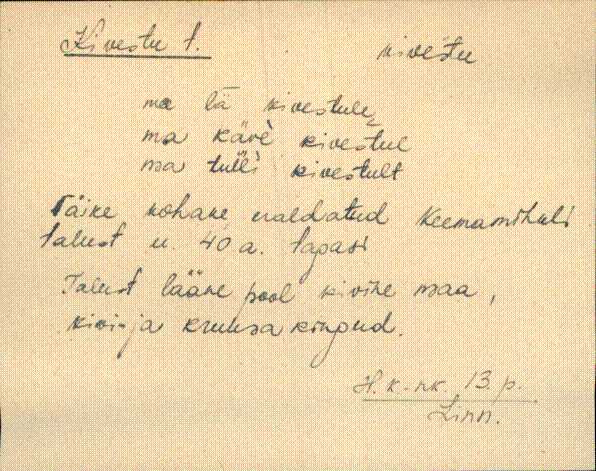 Kivestu t.
kivestu
ma lä kivestule
ma kävè kivestul
ma tulli kivestult
Väike kohake eraldatud Keemamihkli
talust u. 40 a. tagasi
Talust lääne pool kivine maa,
kivi- ja kruusakingud.
H. k.-nk. 13. p.
Linn.